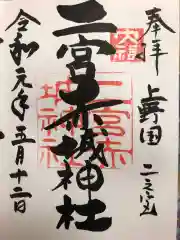 奉拝
上野国
二之宮
二宮赤城神社
大神
二宮赤
城神社
令和元年五月十二日